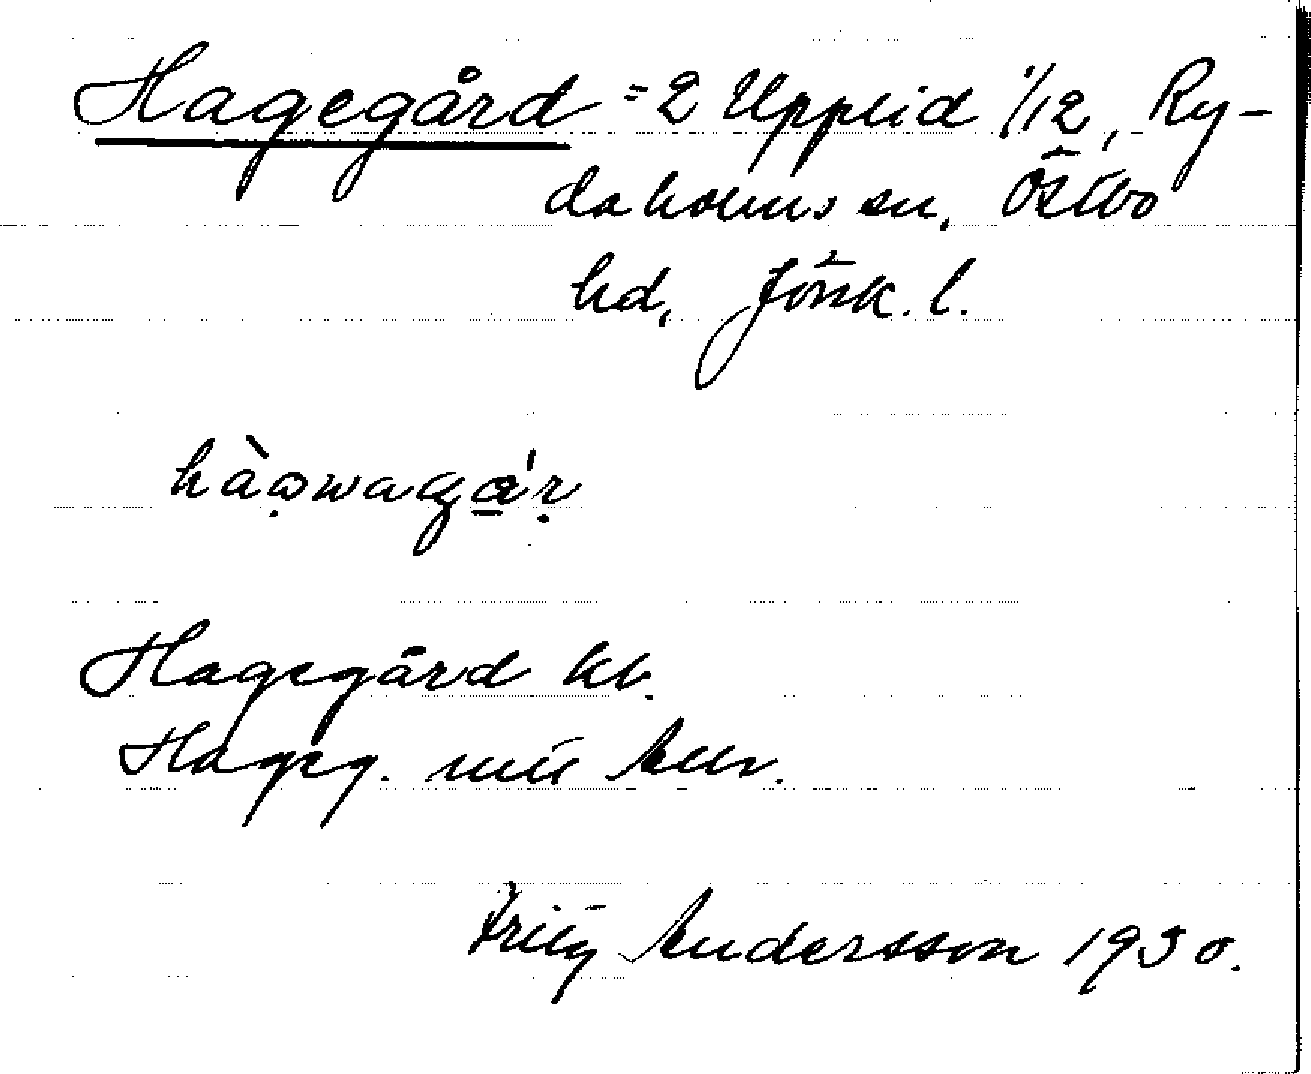 Hagegård = 2 Upplid 1/12, Ry-
daholms sn, Östbo
hd, Jönk. l.
Hagegård kb.
Hageg.
Fritz Andersson 1930.